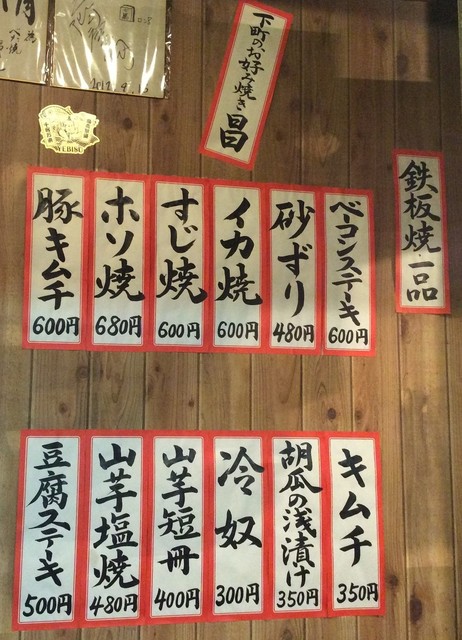 下町のお好み焼き 昌
鉄板焼一品
ベーコンステーキ
600円
砂ずり
480円
イカ焼
600円
すじ焼
600円
ホソ焼
680円
豚キムチ
600円
キムチ
350円
胡瓜の浅漬け
350円
冷奴
300円
山芋短冊
400円
山芋塩焼
480円
豆腐ステーキ
500円
YEBISU